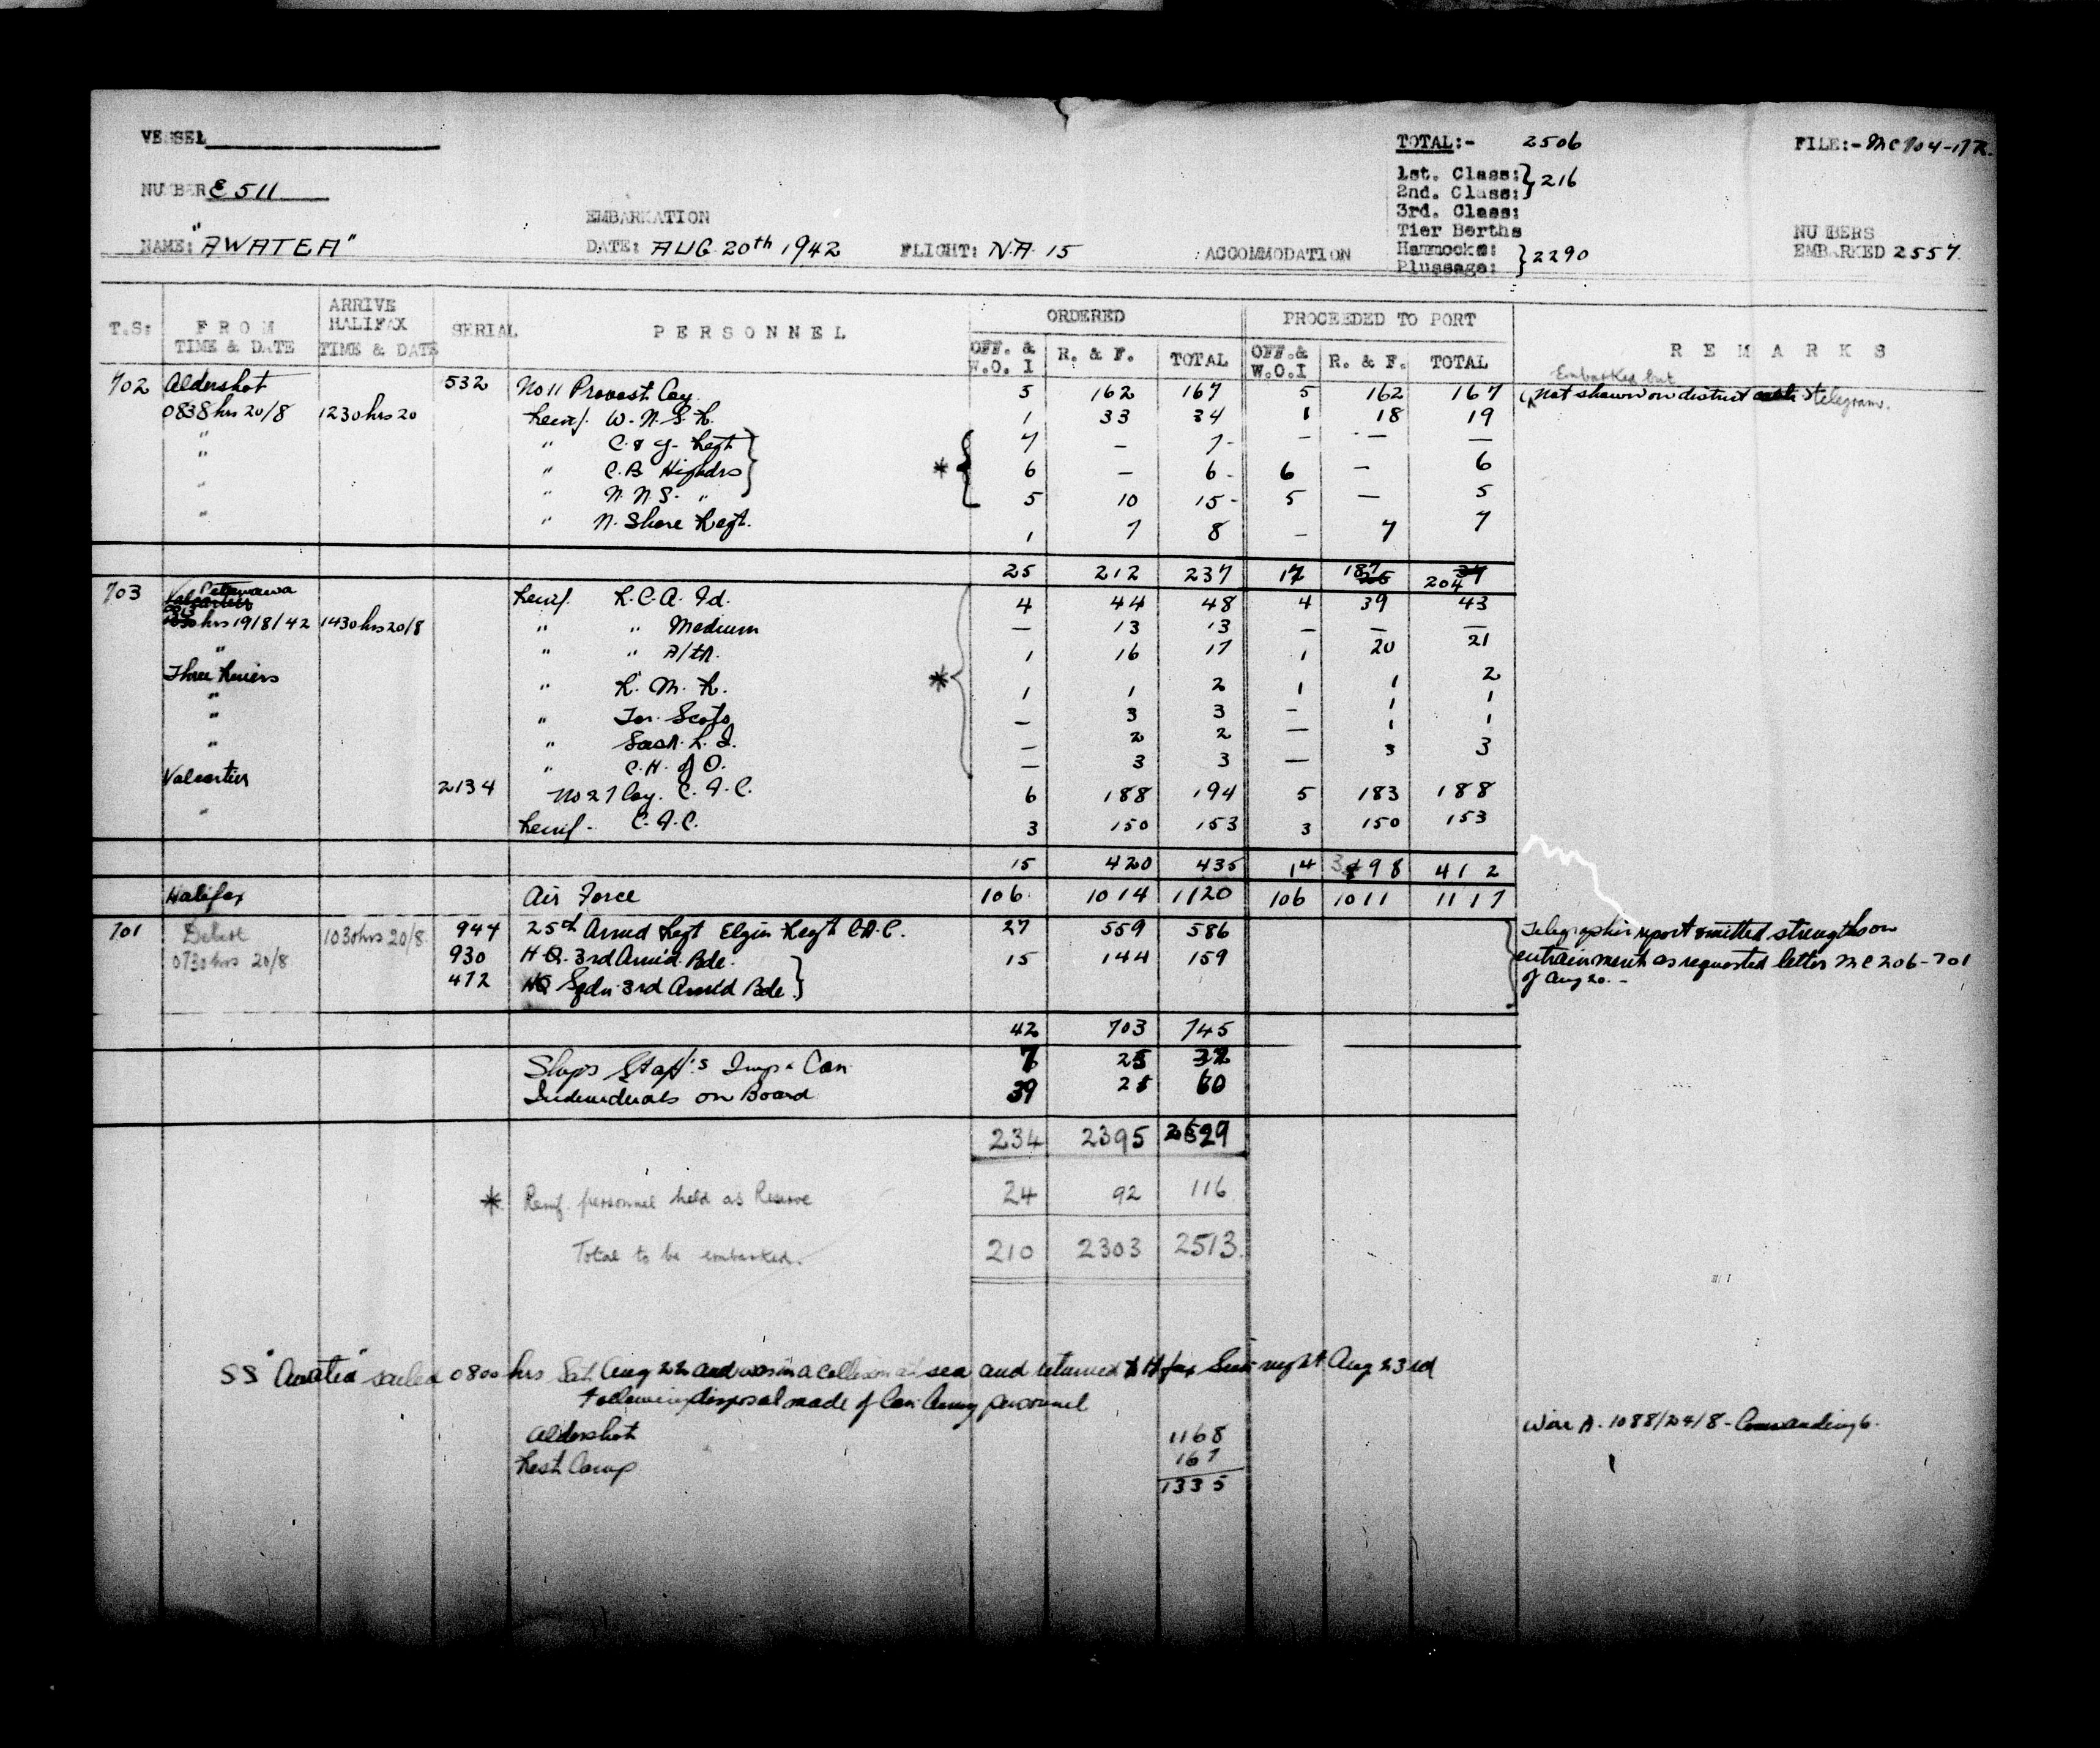 VESSEL
TOTAL:- 2506
FILE:- MC 704-17R.
NUMBER E 511
1st. Class: } 216
2nd. Class:
3rd. Class:
Tier Berths
NAME: "AWATEA"
EMBARKATION
DATE: AUG 20th 1942
FLIGHT: N.A. 15
ACCOMMODATION
Hammocks: } 2290
Plussage:
NUMBERS
EMBARKED 2557
T.S: FROM TIME & DATE ARRIVE HALIFAX TIME & DATE SERIAL PERSONNEL ORDERED PROCEEDED TO PORT REMARKS
OFF. & W.O. I R. & F. TOTAL OFF.& W.O.I R. & F. TOTAL
702 Aldershot 532 No 11 Provost Coy. 5 162 167 5 162 167 (Embarked but Not shown on district telegram.
0838 hrs 20/8 1230 hrs 20 Reinf. W.N.S.R. 1 33 34 1 18 19
" " C. & Y. Regt } 7 — 7 - — — —
" " C.B. Highdrs * { 6 — 6 - 6 — 6
" " N.N.S. " 5 10 15 - 5 — 5
" " N. Shore Regt. 1 7 8 — 7 7
25 212 237 17 187 204
703 Petawawa Reinf. R.C.A. Fd. 4 44 48 4 39 43
hrs 19/8/42 1430 hrs 20/8 " " Medium — 13 13 — — —
" " " A/tk. 1 16 17 1 20 21
Three Rivers " R.M.R. * 1 1 2 1 1 2
" " Tor. Scots — 3 3 — 1 1
" " Sask. L.I. — 2 2 — 1 1
" " C.H. of O. — 3 3 — 3 3
Valcartier 2134 No 27 Coy. C.F.C. 6 188 194 5 183 188
" Reinf - C.F.C. 3 150 153 3 150 153
15 420 435 14 398 412
Halifax Air Force 106 1014 1120 106 1011 1117
701 Debert 1030 hrs 20/8 944 25th Armd Regt Elgin Regt C.A.C. 27 559 586 Telegraphic report omitted strengths on
0730 hrs 20/8 930 H.Q. 3rd Arm'd. Bde. 15 144 159 entrainment as requested letter MC 206-701
472 HQ Sqdn 3rd Arm'd Bde } of Aug 20. -
42 703 745
Ships Staff's Imp & Can 7 25 32
Individuals on Board 39 21 60
234 2395 2629
* Reinf. personnel held as Reserve 24 92 116
Total to be embarked. 210 2303 2513
SS "Awatea" sailed 0800 hrs Sat. Aug 22 and was in a collision at sea and returned to Hfax Sun night Aug 23rd
Following disposal made of Can Army personnel
Aldershot 1168 Wire A. 1088/24/8 -
Rest Camp 167
1335